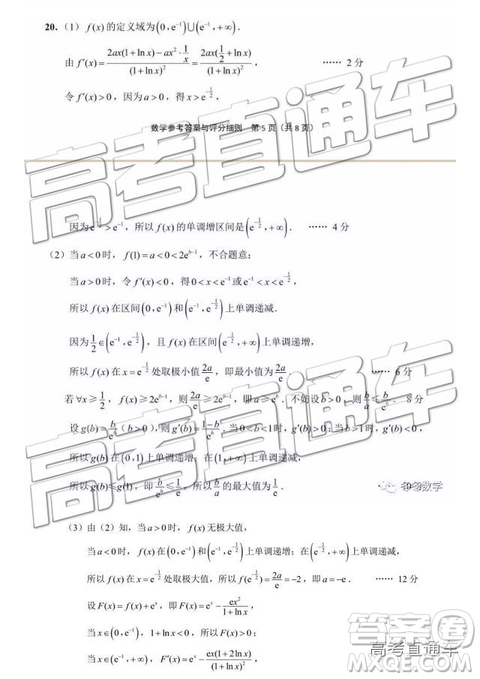 20.(1) f(x)的定义域为(0,e⁻¹)∪(e⁻¹,+∞).
由f′(x)=[2ax(1+ln x)-ax²·1/x]/(1+ln x)²=2ax(1/2+ln x)/(1+ln x)², ……2分
令f′(x)>0,因为a>0,得x>e^(-1/2),
数学参考答案与评分细则 第5页(共8页)
因为e^(-1/2)>e⁻¹,所以f(x)的单调增区间是(e^(-1/2),+∞). ……4分
(2)当a<0时,f(1)=a<0<2e^(b-1),不合题意;
当a>0时,令f′(x)<0,得0<x<e⁻¹或e⁻¹<x<e^(-1/2),
所以f(x)在区间(0,e⁻¹)和(e⁻¹,e^(-1/2))上单调递减.
因为1/2∈(e⁻¹,e^(-1/2)),且f(x)在(e^(-1/2),+∞)上单调递增,
所以f(x)在x=e^(-1/2)处取极小值2a/e,即最小值为2a/e. ……6分
若∀x≥1/2,f(x)≥2e^(b-1),则2a/e≥2e^(b-1),即a≥e^b.不妨设b>0, 8分
设g(b)=b/e^b(b>0),则g′(b)=(1-b)/e^b.当0<b<1时,g′(b)>0;当b>1时,g′(b)<0,
所以g(b)在(0,1)上单调递增;在(1,+∞)上单调递减,
所以g(b)≤g(1),即b/e^b≤1/e,所以b/a的最大值为1/e.
考数学
(3)由(2)知,当a>0时,f(x)无极大值,
当a<0时,f(x)在(0,e⁻¹)和(e⁻¹,e^(-1/2))上单调递增;在(e^(-1/2),+∞)上单调递减,
所以f(x)在x=e^(-1/2)处取极大值,所以f(e^(-1/2))=2a/e=-2,即a=-e. ……12分
设F(x)=f(x)+eˣ,即F(x)=eˣ-ex²/(1+ln x),
当x∈(0,e⁻¹),1+ln x<0,所以F(x)>0;
当x∈(e⁻¹,+∞),F′(x)=eˣ-ex(1+2ln x)/(1+ln x)²
高考直通车
高考直通车
高考直通车
答案圈
高考直通车
MXQE.COM